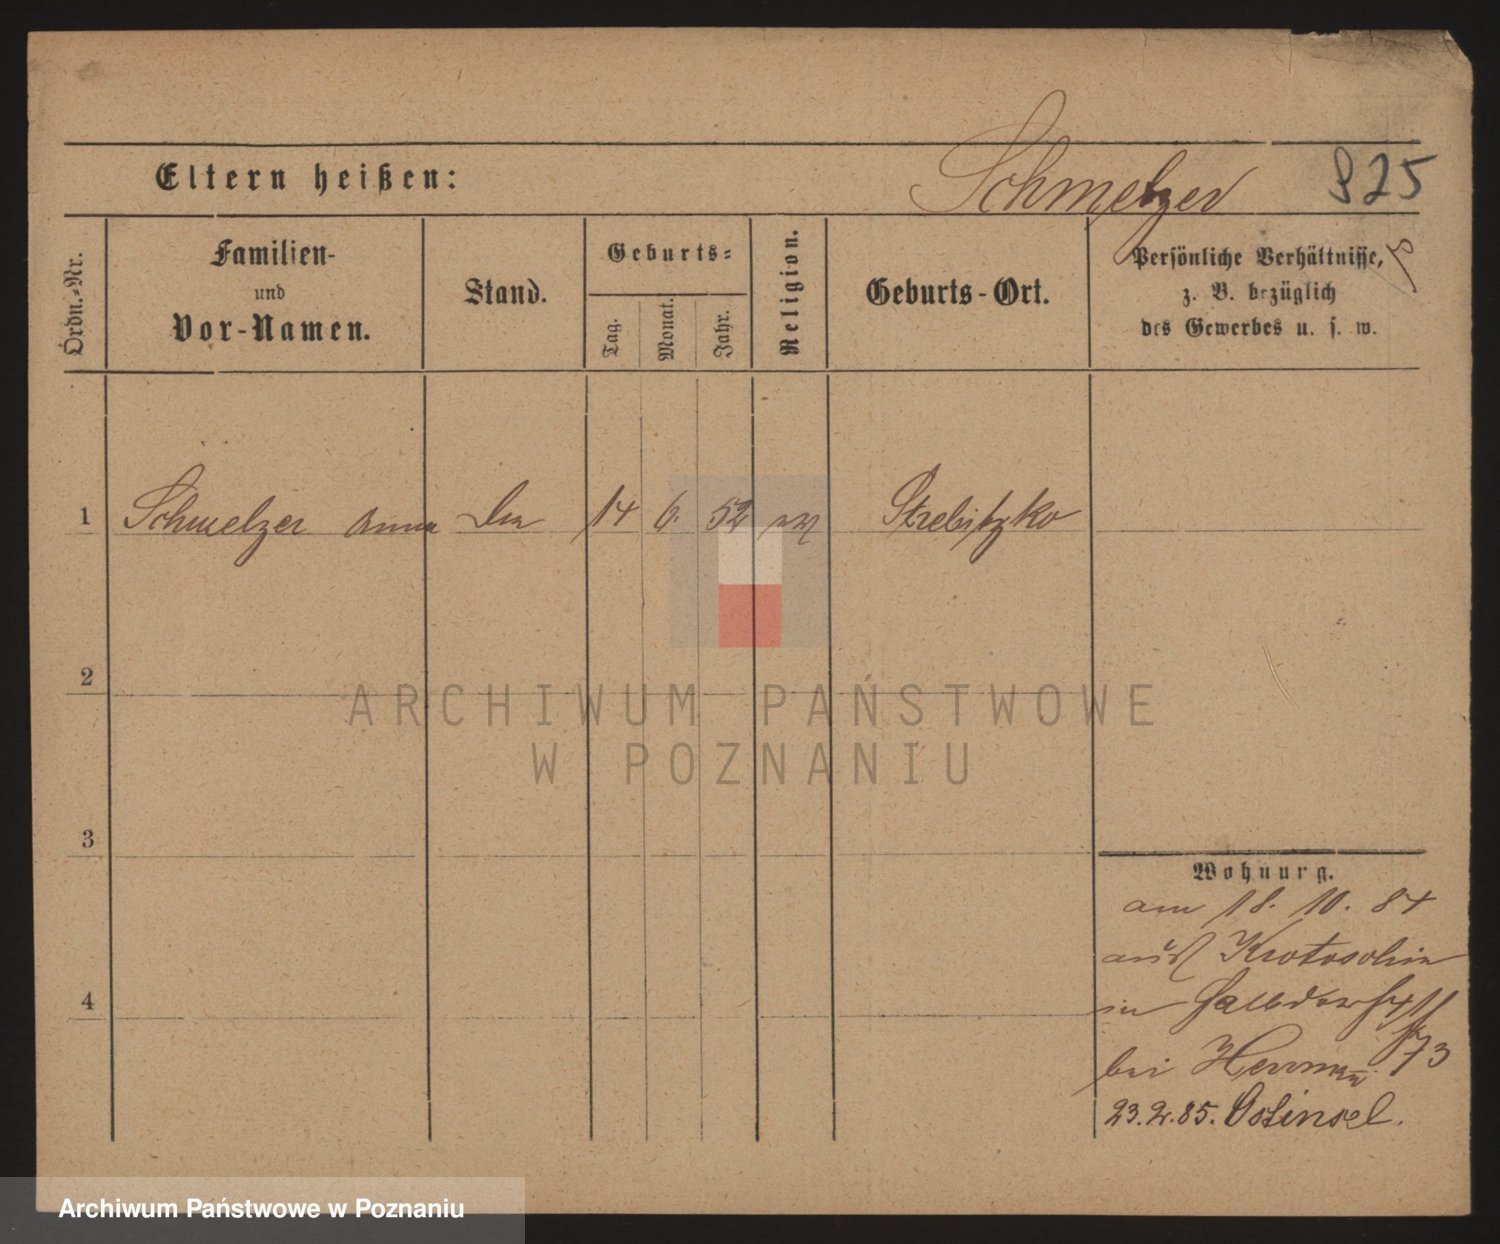 Schmelzer 825
Eltern heißen:
Ordn.-Nr.
Familien-
und
Vor-Namen.
Stand.
Geburts-
Tag.
Monat.
Jahr.
Religion.
Geburts-Ort.
Persönliche Verhältnisse,
z. B. bezüglich
des Gewerbes u. s. w.
1 Schmelzer Anna 14 6. 52 Strebitzko
2
3
4
Wohnung.
am 18. 10. 84
aus Krotoschin
in
bei Herrmann 73
23.2.85. Ostinsel.
ARCHIWUM PAŃSTWOWE
W POZNANIU
Archiwum Państwowe w Poznaniu